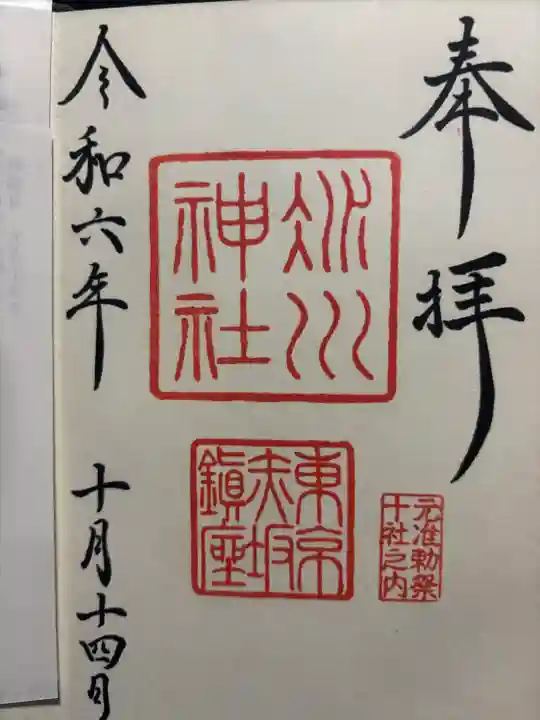 奉拝
氷川
神社
東京
赤坂
鎮座
元准勅祭
十社之内
令和六年 十月十四日